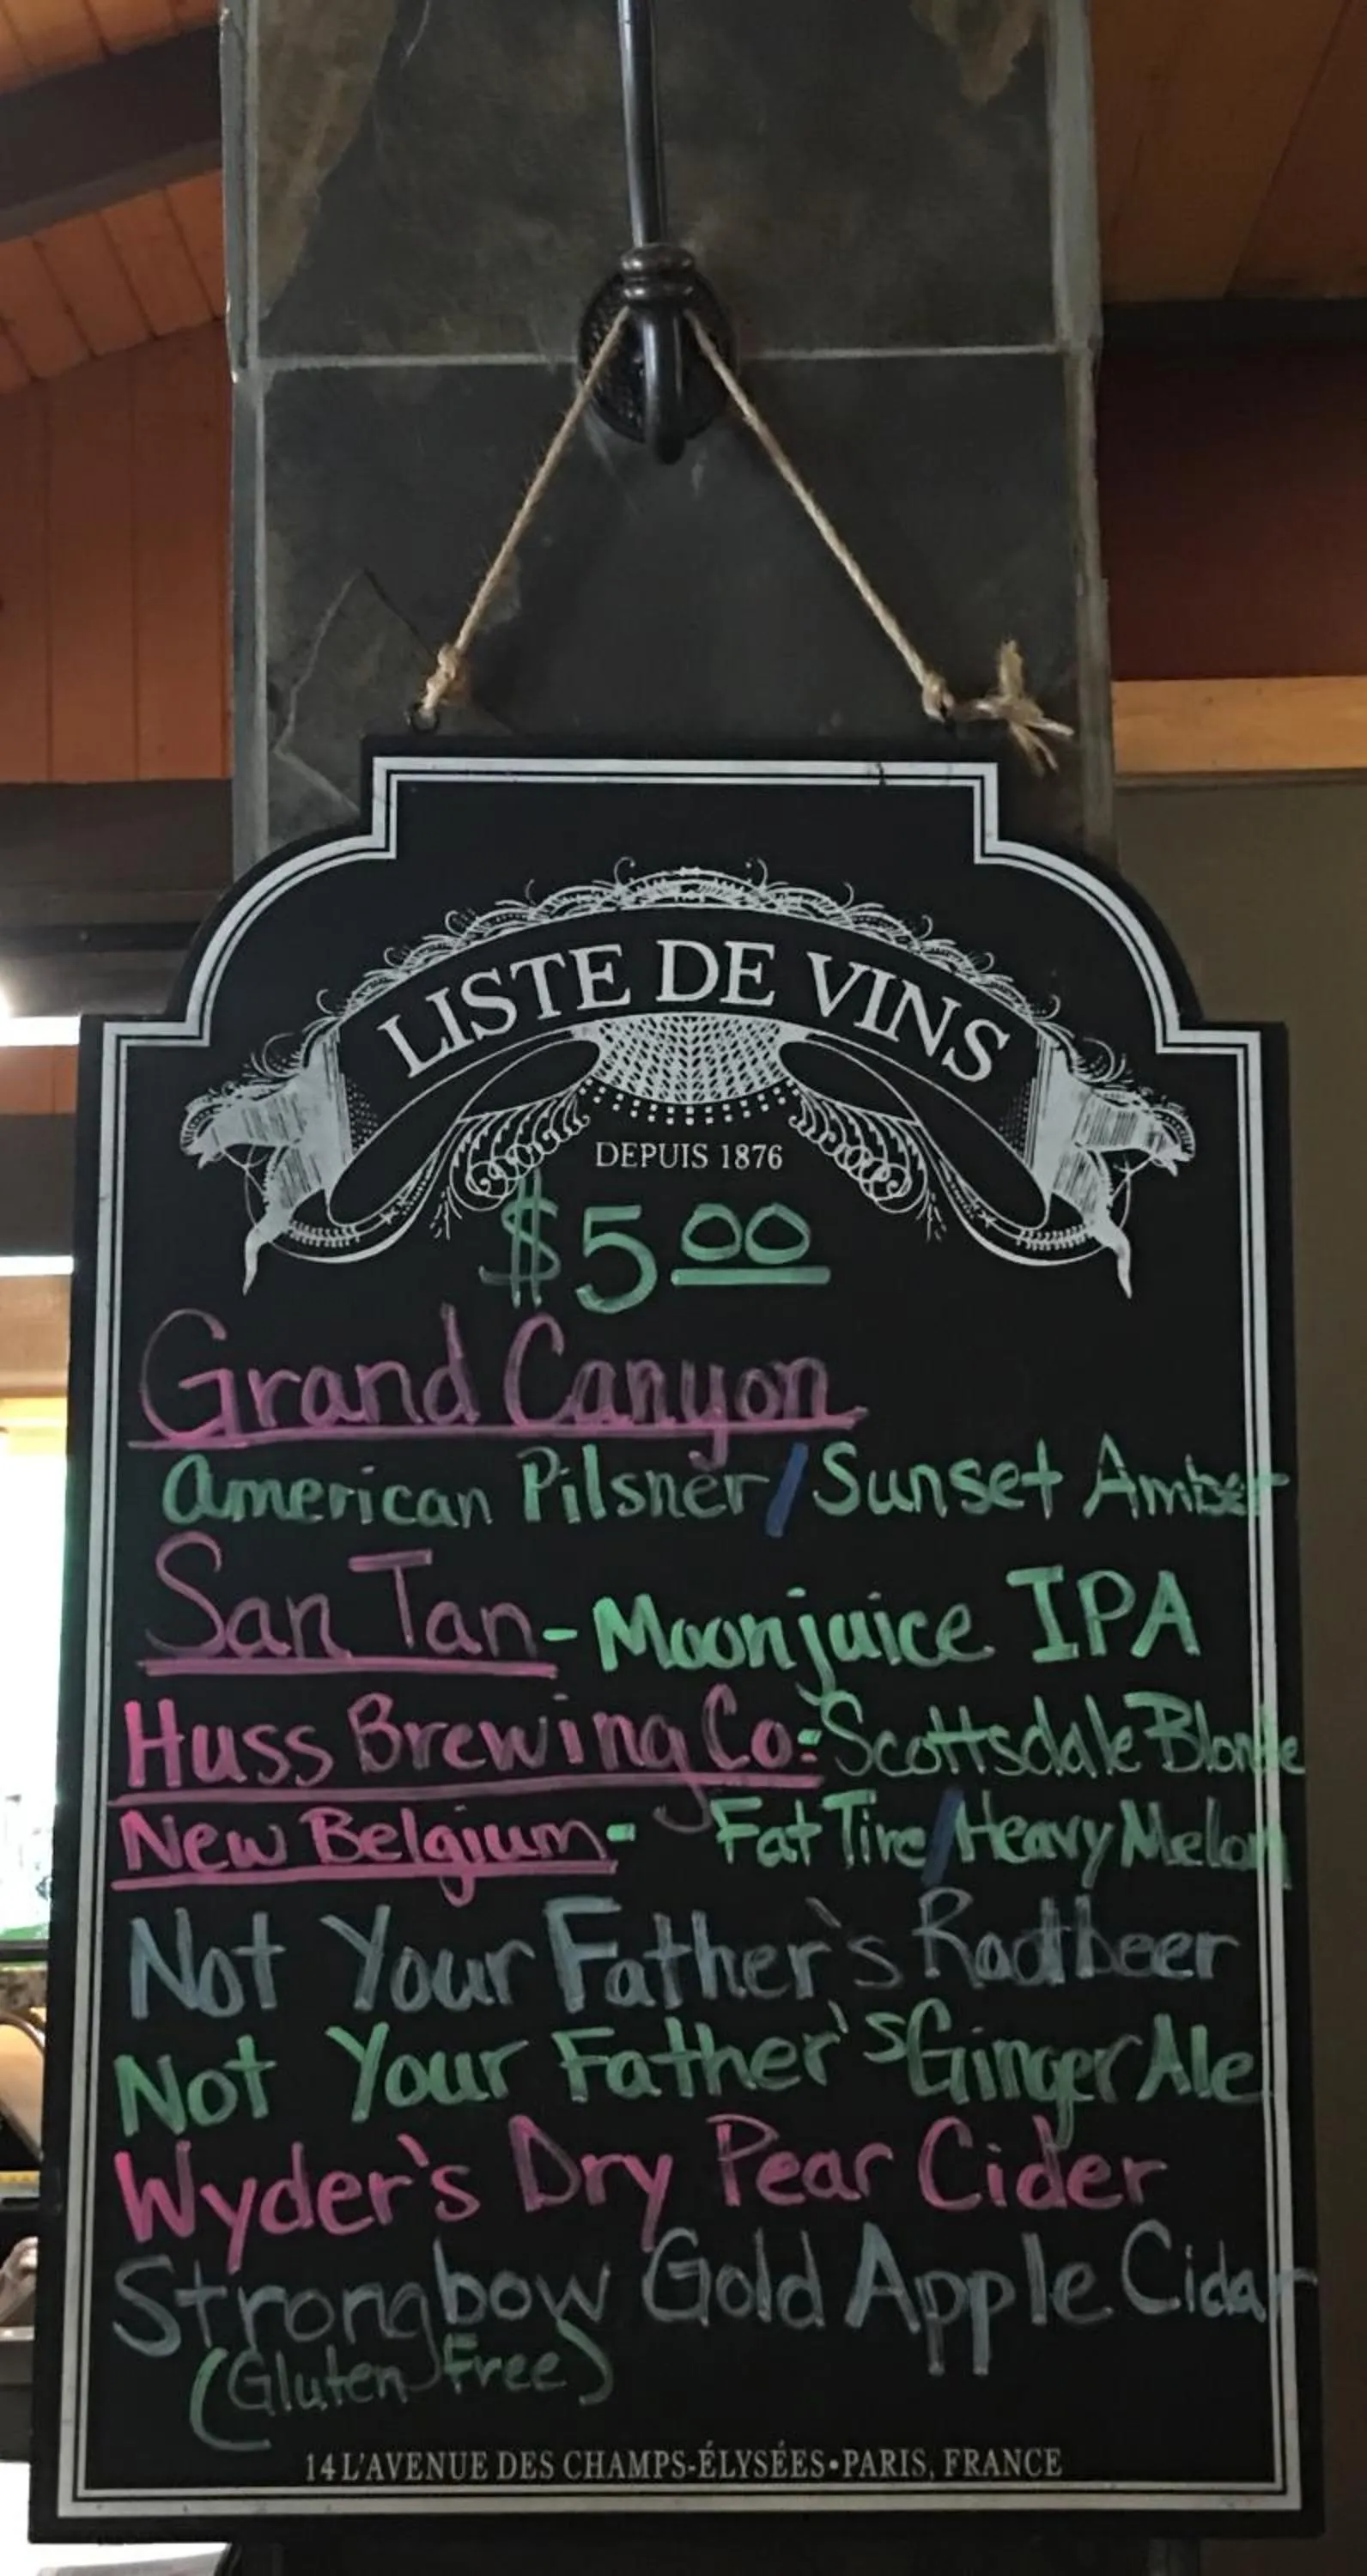 LISTE DE VINS
DEPUIS 1876
$5.00
Grand Canyon
American Pilsner/Sunset Amber
San Tan-Moonjuice IPA
Huss Brewing Co:Scottsdale Blonde
New Belgium- Fat Tire/Heavy Melon
Not Your Father's Rootbeer
Not Your Father's Ginger Ale
Wyder's Dry Pear Cider
Strongbow Gold Apple Cidar
(Gluten Free)
14 L'AVENUE DES CHAMPS-ÉLYSÉES•PARIS, FRANCE